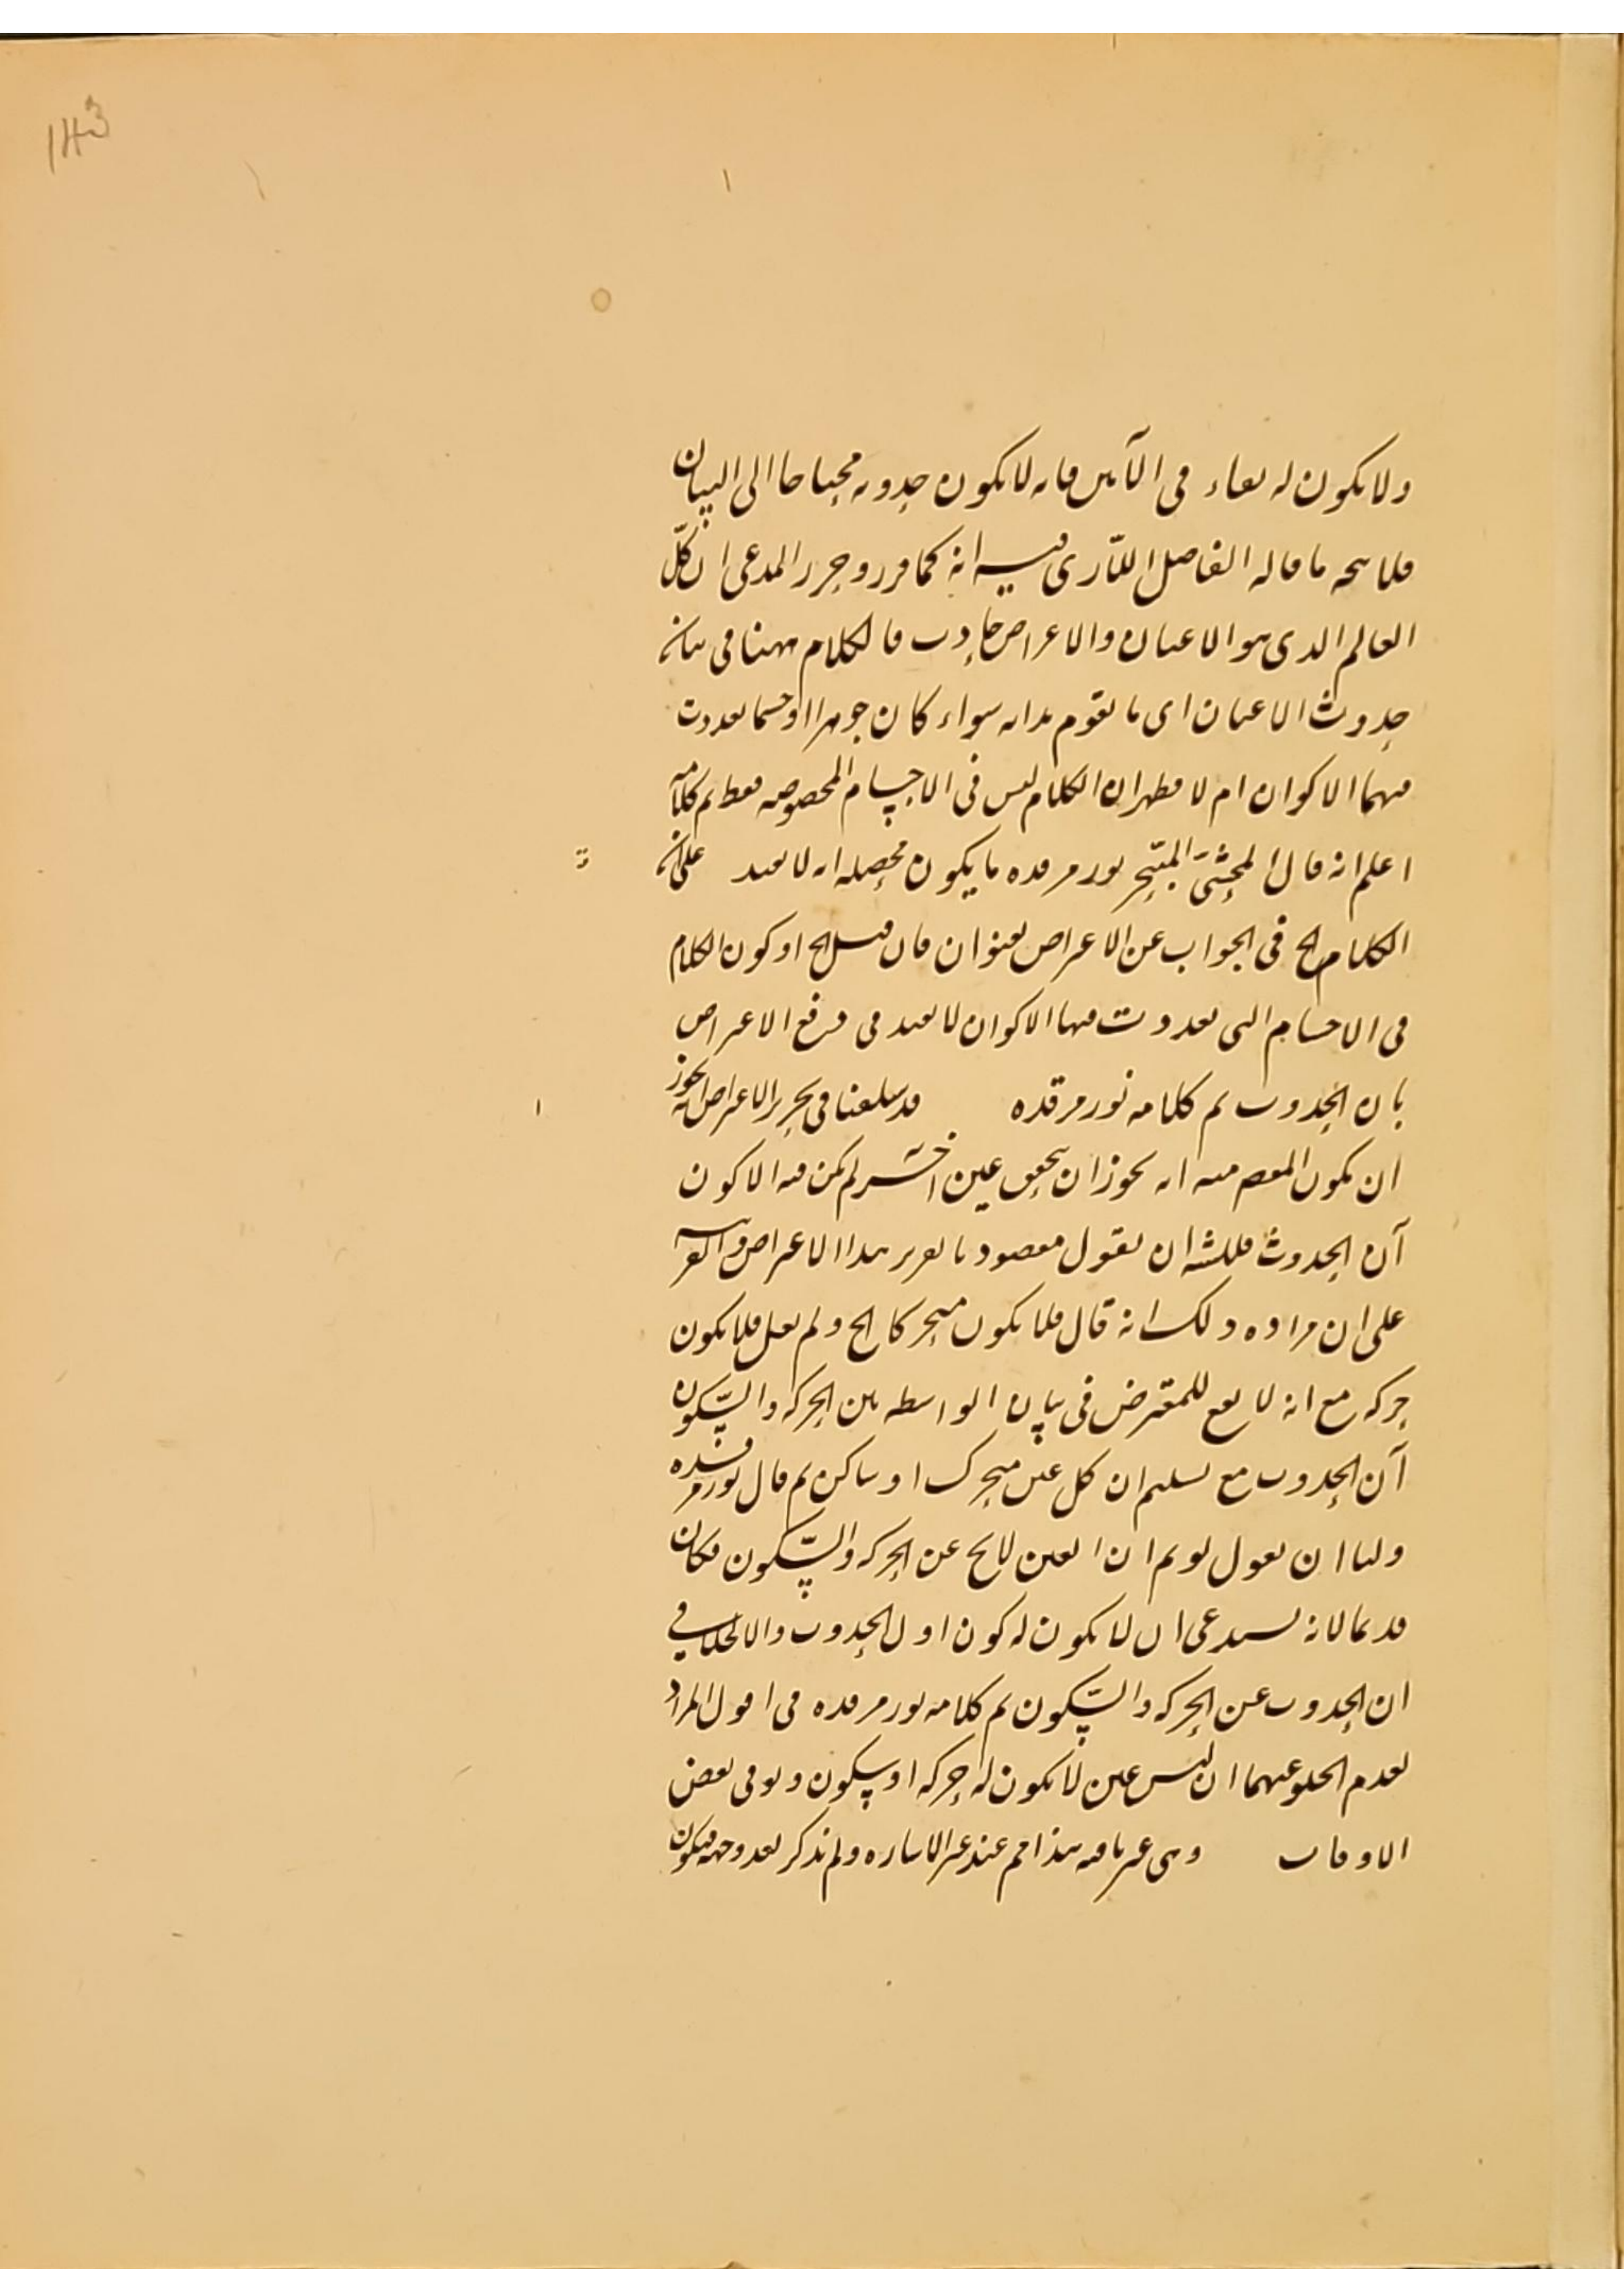 143
ولا يكون له بقاء فى الآنين فانه لا يكون حدوثه محتاجا الى البيان
فلا يتجه ما قاله الفاضل اللارى فيه انه كما قرر وحرر المدعى ان كل
العالم الذى هو الاعيان والاعراض حادث فالكلام ههنا فى بيان
حدوث الاعيان اى ما يقوم بذاته سواء كان جوهرا او جسما تعددت
فيهما الاكوان ام لا فظهر ان الكلام ليس فى الاجسام المخصوصه فقط تم كلامه
اعلم انه قال المحشى المتبحر نور مرقده ما يكون محصله انه لا يفيد على ان
الكلام الخ فى الجواب عن الاعراض بعنوان فان قيل الخ او كون الكلام
فى الاجسام التى تعددت فيها الاكوان لا يفيد فى دفع الاعراض
بان الحدوث تم كلامه نور مرقده قد سلفنا فى تحرير الاعراض انه يجوز
ان يكون المقصم منه انه يجوز ان يتحقق عين اخر لم يكن فيه الا كون
آن الحدوث فللشه ان يقول مقصود بالعرير هذا الاعراض والقرينه
على ان مراده ذلك انه قال فلا يكون متحركا الخ ولم يقل فلا يكون
حركه مع انه لا يقع للمعترض فى بيان الواسطه بين الحركه والسكون
آن الحدوث مع تسليم ان كل عين متحرك او ساكن ثم قال نور مرقده
ولنا ان نقول لو تم ان العين لا يخ عن الحركه والسكون فكان
قديما لانه يستدعى ان لا يكون له كون اول الحدوث والا لخلا فى
ان الحدوث عن الحركه والسكون تم كلامه نور مرقده فى اقول المراد
بعدم الخلو عنهما ان ليس عين لا يكون له حركه او سكون ولو فى بعض
الاوقات وهى غير باقيه هذا تم عند غير الاشاره ولم نذكر بعد وجهه فيكون